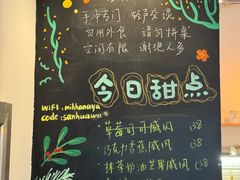 手冲专门 轻声交谈
勿用外食 请勿拼桌
空间有限 谢绝人多
今日甜点
WIFI: mikhanaya
code: sanhuawu
草莓可可戚风 38
巧克力香蕉戚风 38
抹茶奶油芒果戚风 38